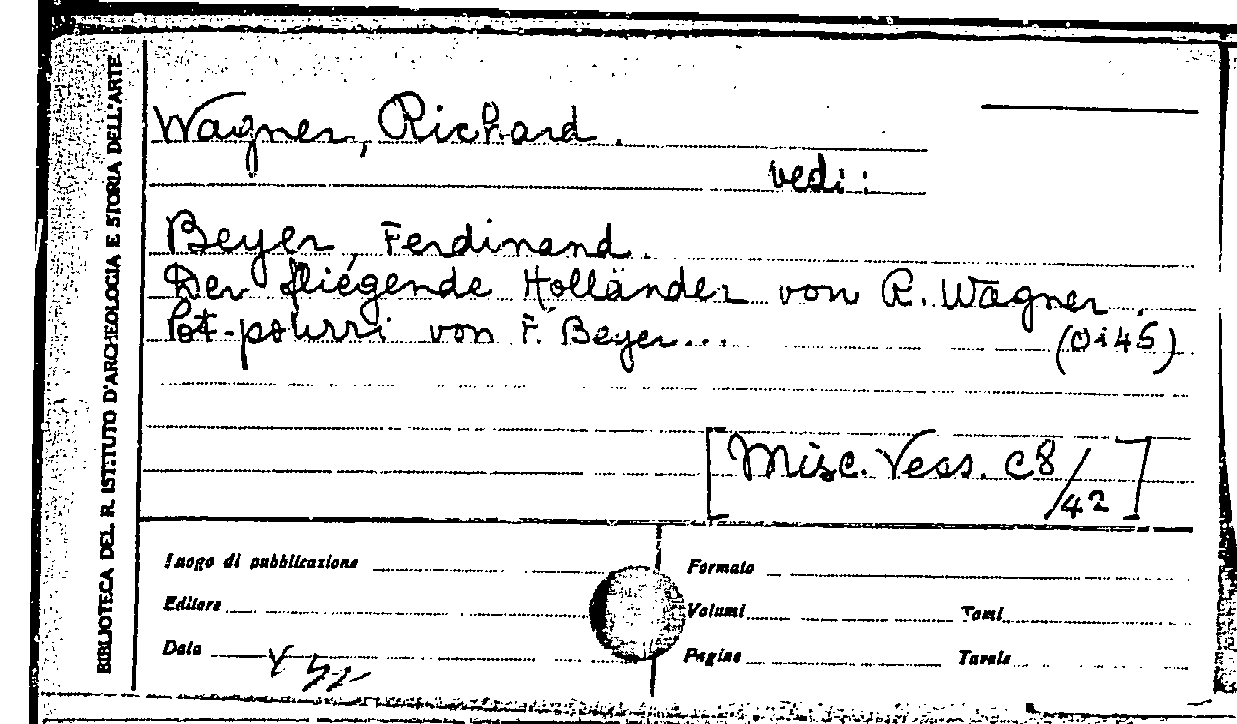 BIBLIOTECA DEL R. ISTITUTO D'ARCHEOLOGIA E STORIA DELL'ARTE
Wagner, Richard.
vedi:
Beyer, Ferdinand.
Der fliegende Holländer von R. Wagner.
Pot-pourri von F. Beyer...
(Oi45)
[Misc. Vess. C8/42]
Luogo di pubblicazione
Formato
Editore
Volumi
Tomi
Data
Pagine
Tavole